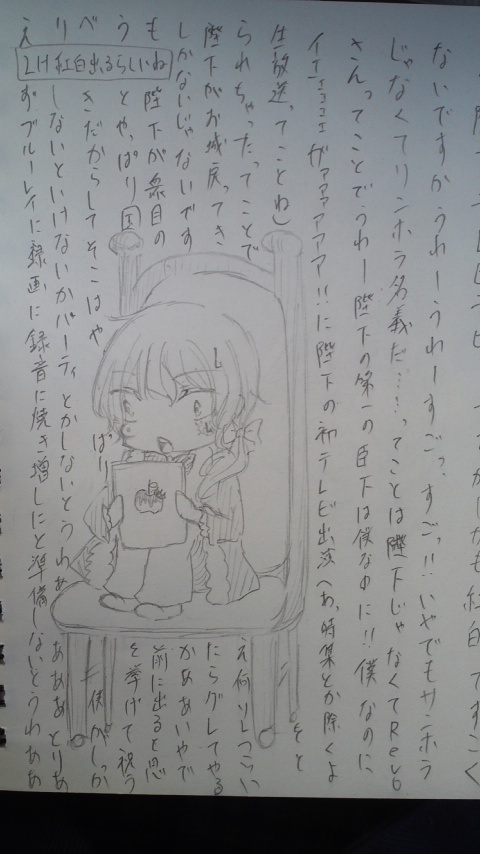 ないですかうわーうわーすごっ、すごっ!!いやでもサンホラ
じゃなくてリンホラ名義だ……ってことは陛下じゃなくてRevo
さんってことでうわー陛下の第一の臣下は僕なのに!!僕なのに
イィェェェェガァァァァァ!!に陛下の初テレビ出演へあ、特集とか除くよ
生放送ってことね)
られちゃったってことで
陛下がお城戻ってき
しかないじゃないです
も陛下が衆目の
うとやっぱり国
べきだからしてそこはや
りしないといけないかパーティとかしないとうわぁ
えずブルーレイに録画に録音に焼き増しにと準備しないとうわぁぁ
そと
え何ソレつらい
たらグしてやる
かああいやで
前に出ると思
を挙げて祝う
ぱり
僕がしっか
あああとりあ
LH紅白出るらしいね